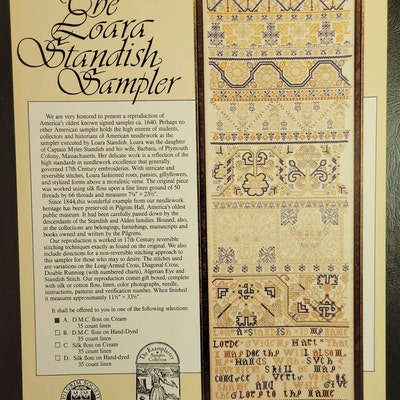 The
Loara
Standish
Sampler
We are very honored to present a reproduction of
America's oldest known signed sampler ca. 1640. Perhaps no
other American sampler holds the high esteem of students,
collectors and historians of American needlework as the
sampler executed by Loara Standish. Loara was the daughter
of Captain Myles Standish and his wife, Barbara, of Plymouth
Colony, Massachusetts. Her delicate work is a reflection of the
high standards in needlework excellence that generally
governed 17th Century embroideries. With intricate and
reversible stitches, Loara fashioned roses, pansies, gillyflowers,
and stylized forms above a moralistic verse. The original piece
was worked using silk floss upon a fine linen ground of 50
threads by 66 threads and measures 7¼" × 23½".
Since 1844, this wonderful example from our needlework
heritage has been preserved in Pilgrim Hall, America's oldest
public museum. It had been carefully passed down by the
descendants of the Standish and Alden families. Housed, also,
in the collections are belongings, furnishings, manuscripts and
books owned and written by the Pilgrims.
Our reproduction is worked in 17th Century reversible
stitching techniques exactly as found on the original. We also
include directions for a non-reversible stitching approach to
this sampler for those who may so desire. The stitches used
are variations on the Long-Armed Cross, Diagonal Cross,
Double Running (with numbered charts), Algerian Eye and
Standish Stitch. Our reproduction comes gift boxed, complete
with silk or cotton floss, linen, color photographs, needle,
instructions, patterns and verification number. When finished
it measures approximately 11½" × 33½".
It shall be offered to you in one of the following selections:
■ A. D.M.C. floss on Cream
35 count linen
□ B. D.M.C. floss on Hand-Dyed
35 count linen
□ C. Silk floss on Cream
35 count linen
□ D. Silk floss on Hand-dyed
35 count linen
The Examplarery
Lorde Hart That
I may Doe thy I also my
Hands with Such
Skill as may
conduce Vertue
and will
Glory to the Name